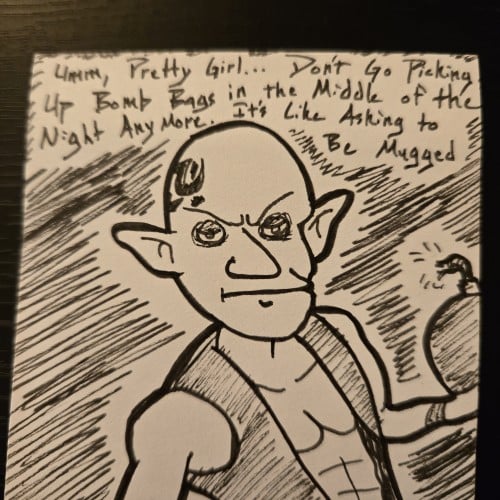 Umm, Pretty Girl... Don't Go Picking
Up Bomb Bags in the Middle of the
Night Anymore. It's Like Asking to
Be Mugged